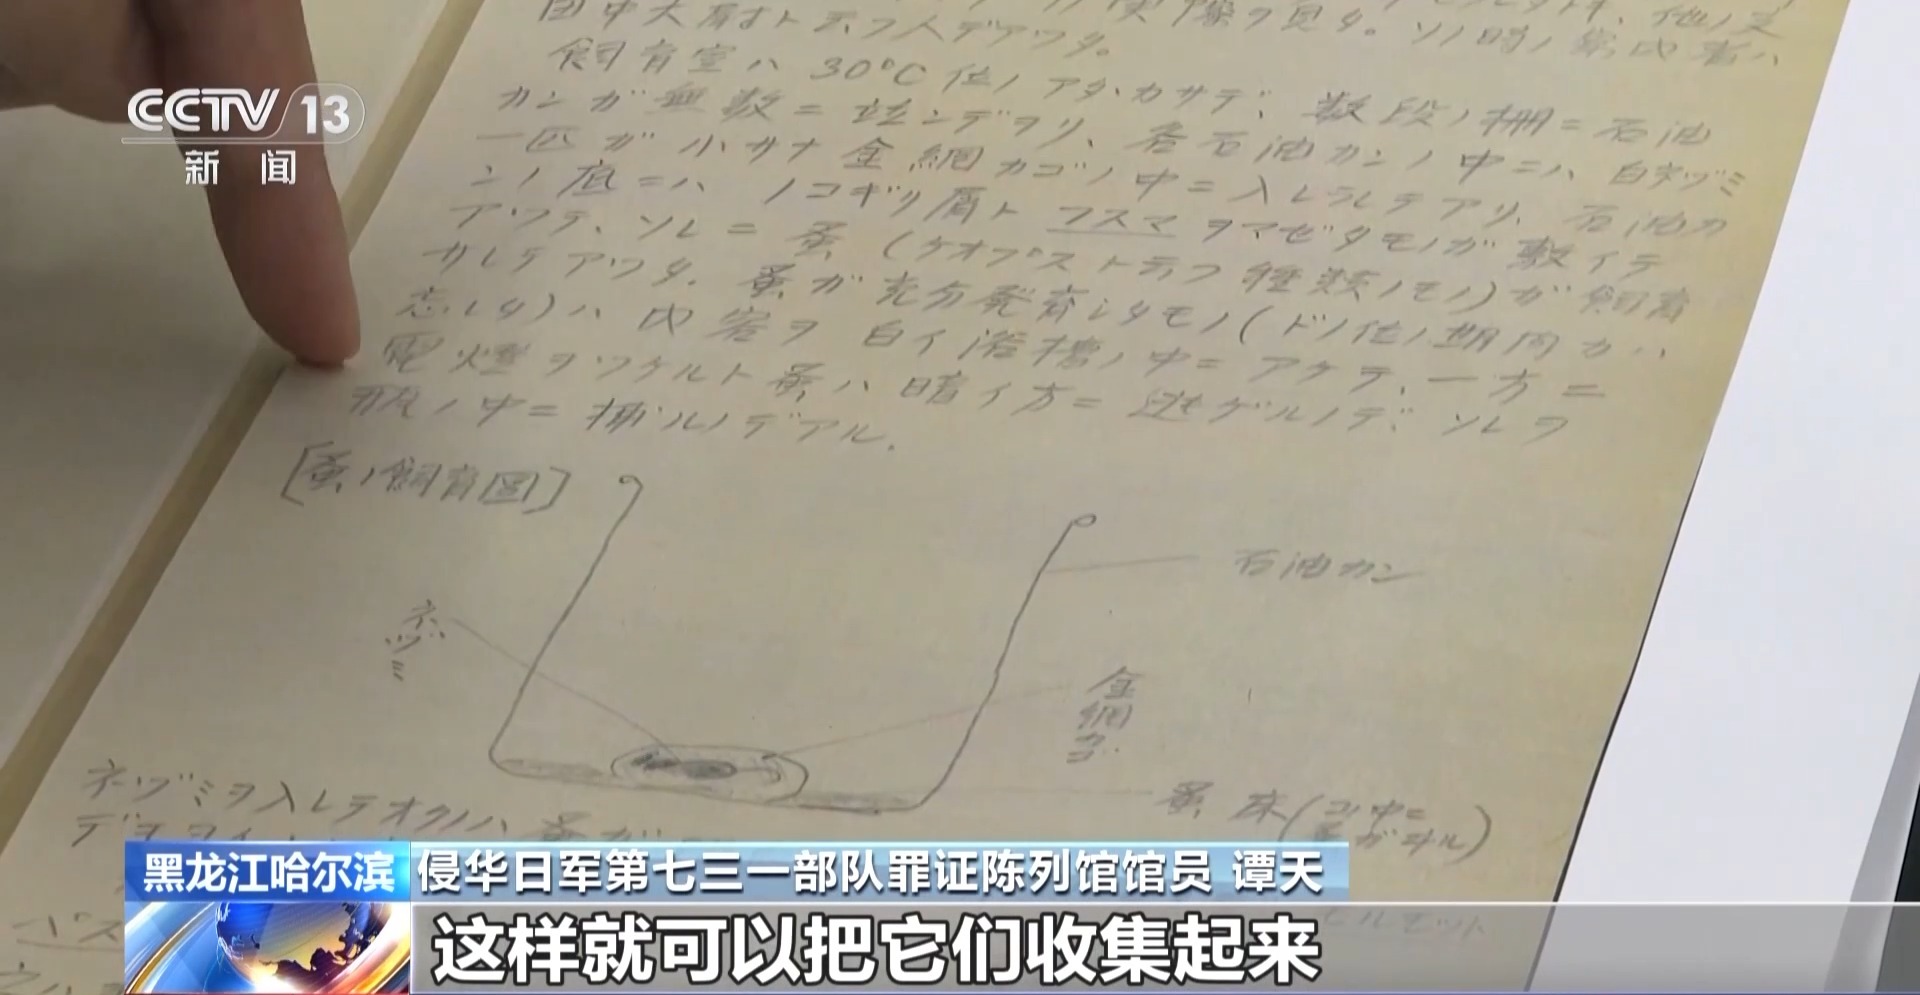 団中大
飼育室ハ 30°C 位ノアタカサデ、数段ノ棚ニ石油
カンガ無数ニ並ンデヲリ、各石油カンノ中ニハ白ネヅミ
一匹ガ小サナ金網カゴノ中ニ入レラレテアリ、石油カ
ンノ底ニハノコギリ屑トフスマヲマゼタモノガ敷イテ
アッテ、ソレニ蚤(ケオプストラフ種類ノモノ)ガ飼育
サレテアッタ。蚤ガ充分発育シタモノ(ドノ位ノ期間カハ
忘レタ)ハ内容ヲ白イ浴槽ノ中ニアケテ、一方ニ
電燈ヲツケルト蚤ハ暗イ方ニ逃ゲルノデ、ソレヲ
瓶ノ中ニ捕ルノデアル。
[蚤ノ飼育図]
石油カン
ネヅミ
金網カゴ
蚤床(コノ中ニ蚤ガヰル)
ネヅミヲ入レテオクノハ蚤ガ
CCTV 13
新闻
黑龙江哈尔滨
侵华日军第七三一部队罪证陈列馆馆员 谭天
这样就可以把它们收集起来